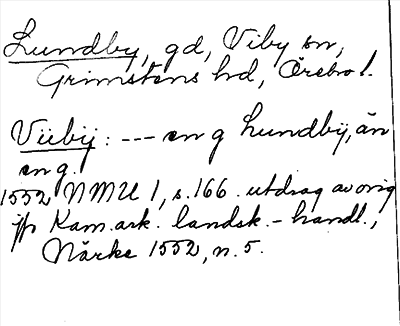 Lundby, gd, Viby sn,
Grimstens hd, Örebro l.
Viibÿ: --- en g Lundbÿ, än
en g.
1552 NMU 1, s. 166. utdrag av orig
i Kam.ark. landsk.-handl.,
Närke 1552, n. 5.